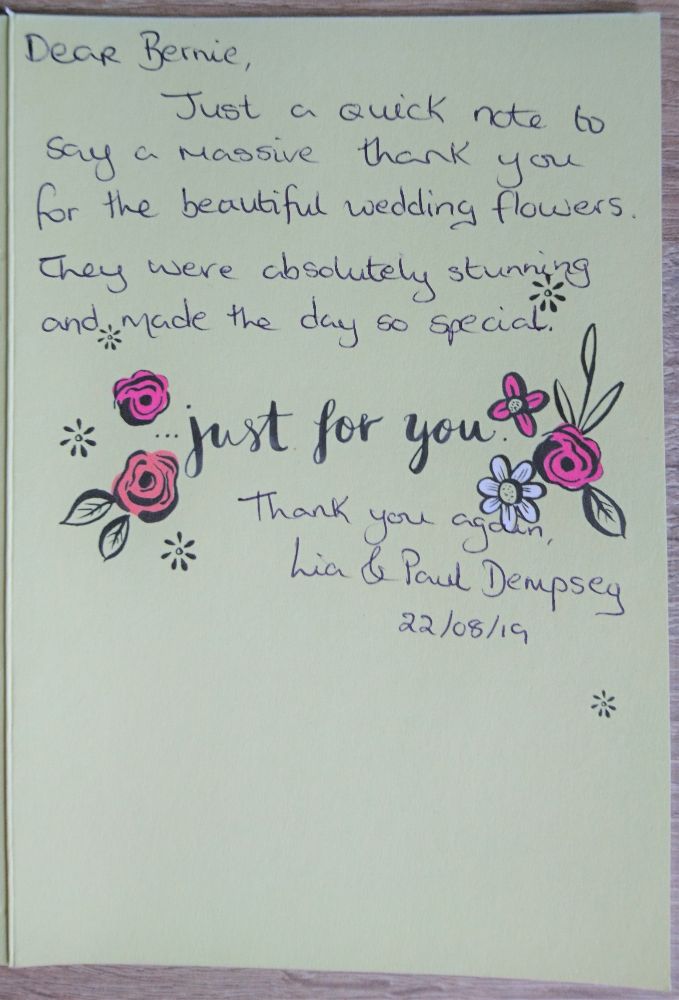 Dear Bernie,
Just a quick note to
say a massive thank you
for the beautiful wedding flowers.
They were absolutely stunning
and made the day so special.
...just for you.
Thank you again,
Lia & Paul Dempsey
22/08/19